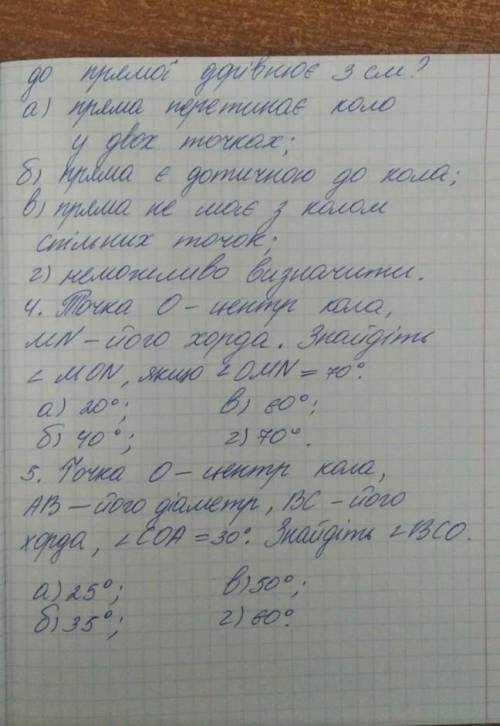 до прямої дорівнює 3 см?
а) пряма перетинає коло
у двох точках;
б) пряма є дотичною до кола;
в) пряма не має з колом
спільних точок;
г) неможливо визначити.
4. Точка О – центр кола,
MN – його хорда. Знайдіть
∠ MON, якщо ∠OMN = 70°.
а) 20°; в) 60°;
б) 40°; г) 70°.
5. Точка О – центр кола,
АВ – його діаметр, ВС – його
хорда, ∠COA = 30°. Знайдіть ∠BCO.
а) 25°; в) 50°;
б) 35°; г) 60°.